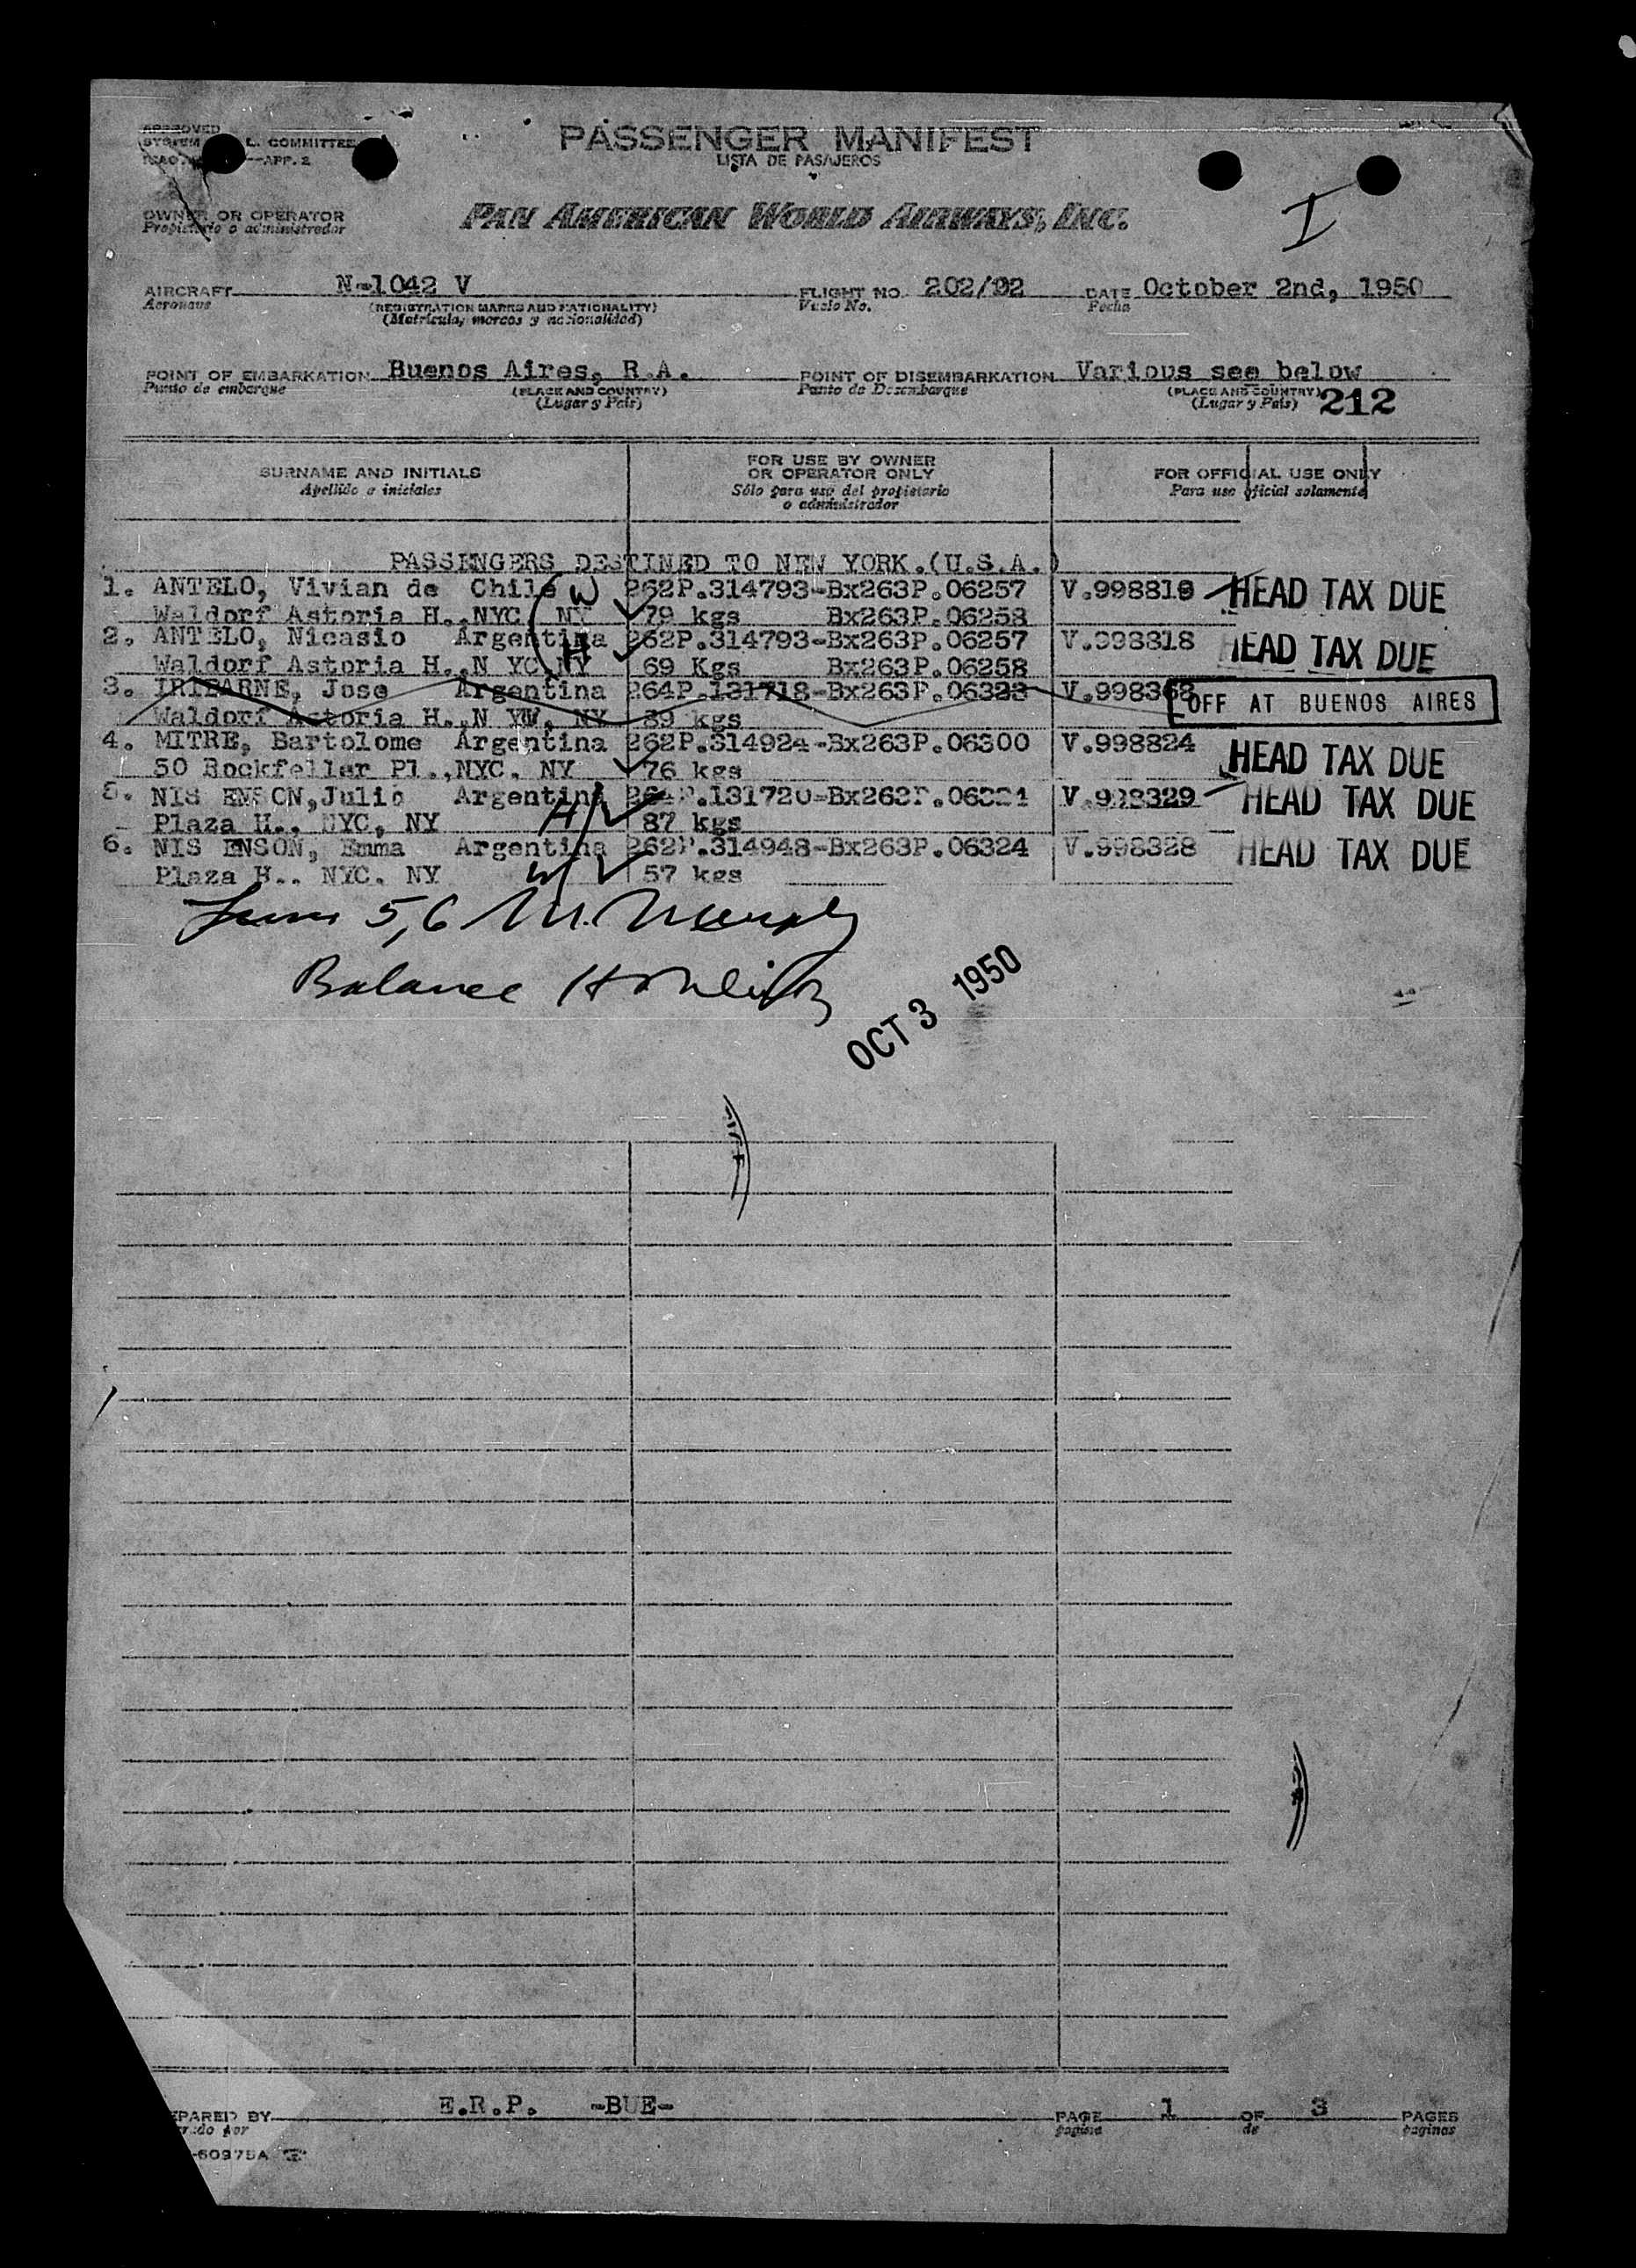 APPROVED PASSENGER MANIFEST
SYSTEM L. COMMITTEE LISTA DE PASAJEROS
—APP. 2
OWNER OR OPERATOR PAN AMERICAN WORLD AIRWAYS, INC. I
Propietario o administrador
AIRCRAFT N-1042 V FLIGHT NO. 202/02 DATE October 2nd, 1950
Aeronave (REGISTRATION MARKS AND NATIONALITY) Vuelo No. Fecha
(Matricula, marcas y nacionalidad)
POINT OF EMBARKATION Buenos Aires, R.A. POINT OF DISEMBARKATION Various see below
Punto de embarque (PLACE AND COUNTRY) Punto de Desembarque (PLACE AND COUNTRY)
(Lugar y País) (Lugar y País) 212
SURNAME AND INITIALS FOR USE BY OWNER OR OPERATOR ONLY FOR OFFICIAL USE ONLY
Apellido e iniciales Sólo para uso del propietario o administrador Para uso oficial solamente
PASSENGERS DESTINED TO NEW YORK.(U.S.A.)
1. ANTELO, Vivian de Chile W 262P.314793-Bx263P.06257 V.998819 HEAD TAX DUE
Waldorf Astoria H.,NYC, NY 79 kgs Bx263P.06258
2. ANTELO, Nicasio Argentina H 262P.314793-Bx263P.06257 V.998818 HEAD TAX DUE
Waldorf Astoria H.,N YC NY 69 Kgs Bx263P.06258
3. IRIBARNE, Jose Argentina 264P.131718-Bx263P.06323 V.998368 OFF AT BUENOS AIRES
Waldorf Astoria H.,N NY 89 kgs
4. MITRE, Bartolome Argentina 262P.314924-Bx263P.06300 V.998824 HEAD TAX DUE
50 Rockfeller Pl.,NYC, NY 76 kgs
5. NIS ENSON,Julio Argentina H 264P.131720-Bx263P. V.998329 HEAD TAX DUE
Plaza H., NYC, NY 87 kgs
6. NIS ENSON, Emma Argentina W 262P.314948-Bx263P.06324 V.998328 HEAD TAX DUE
Plaza H., NYC, NY 57 kgs
5,6 M. Murphy
Balance
OCT 3 1950
EPARED BY E.R.P. -BUE- PAGE 1 OF 3 PAGES
rado por página de páginas
-60975A